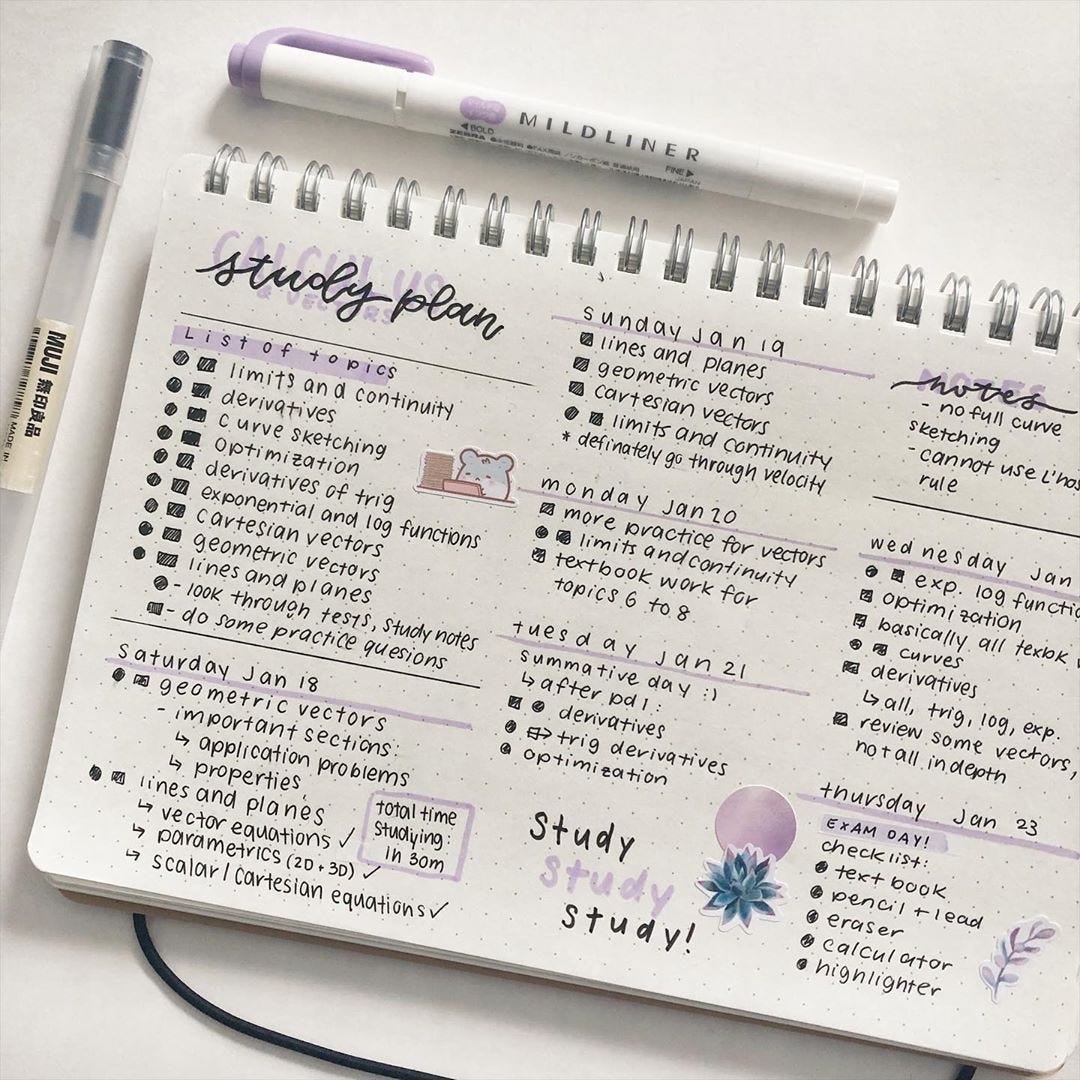 MILDLINER
BOLD
ZEBRA
FINE
JAPAN
MUJI 無印良品
MADE IN
CALCULUS
& VECTORS
study plan
List of topics
limits and continuity
derivatives
curve sketching
optimization
derivatives of trig
exponential and log functions
cartesian vectors
geometric vectors
lines and planes
- look through tests, study notes
- do some practice quesions
saturday Jan 18
geometric vectors
- important sections:
↳ application problems
↳ properties
lines and planes
↳ vector equations ✓
↳ parametrics (2D + 3D) ✓
↳ scalar/cartesian equations ✓
total time
studying:
1h 30m
sunday Jan 19
lines and planes
geometric vectors
cartesian vectors
limits and continuity
* definately go through velocity
monday Jan 20
more practice for vectors
limits and continuity
textbook work for
topics 6 to 8
tuesday Jan 21
summative day :)
↳ after pd 1:
derivatives
trig derivatives
optimization
study
study
study!
NOTES
notes
- no full curve
sketching
- cannot use L'hos
rule
wednesday Jan
exp. log functio
optimization
basically all texbk
curves
derivatives
↳ all, trig, log, exp.
review some vectors,
not all in depth
thursday Jan 23
EXAM DAY!
checklist:
text book
pencil + lead
eraser
calculator
highlighter